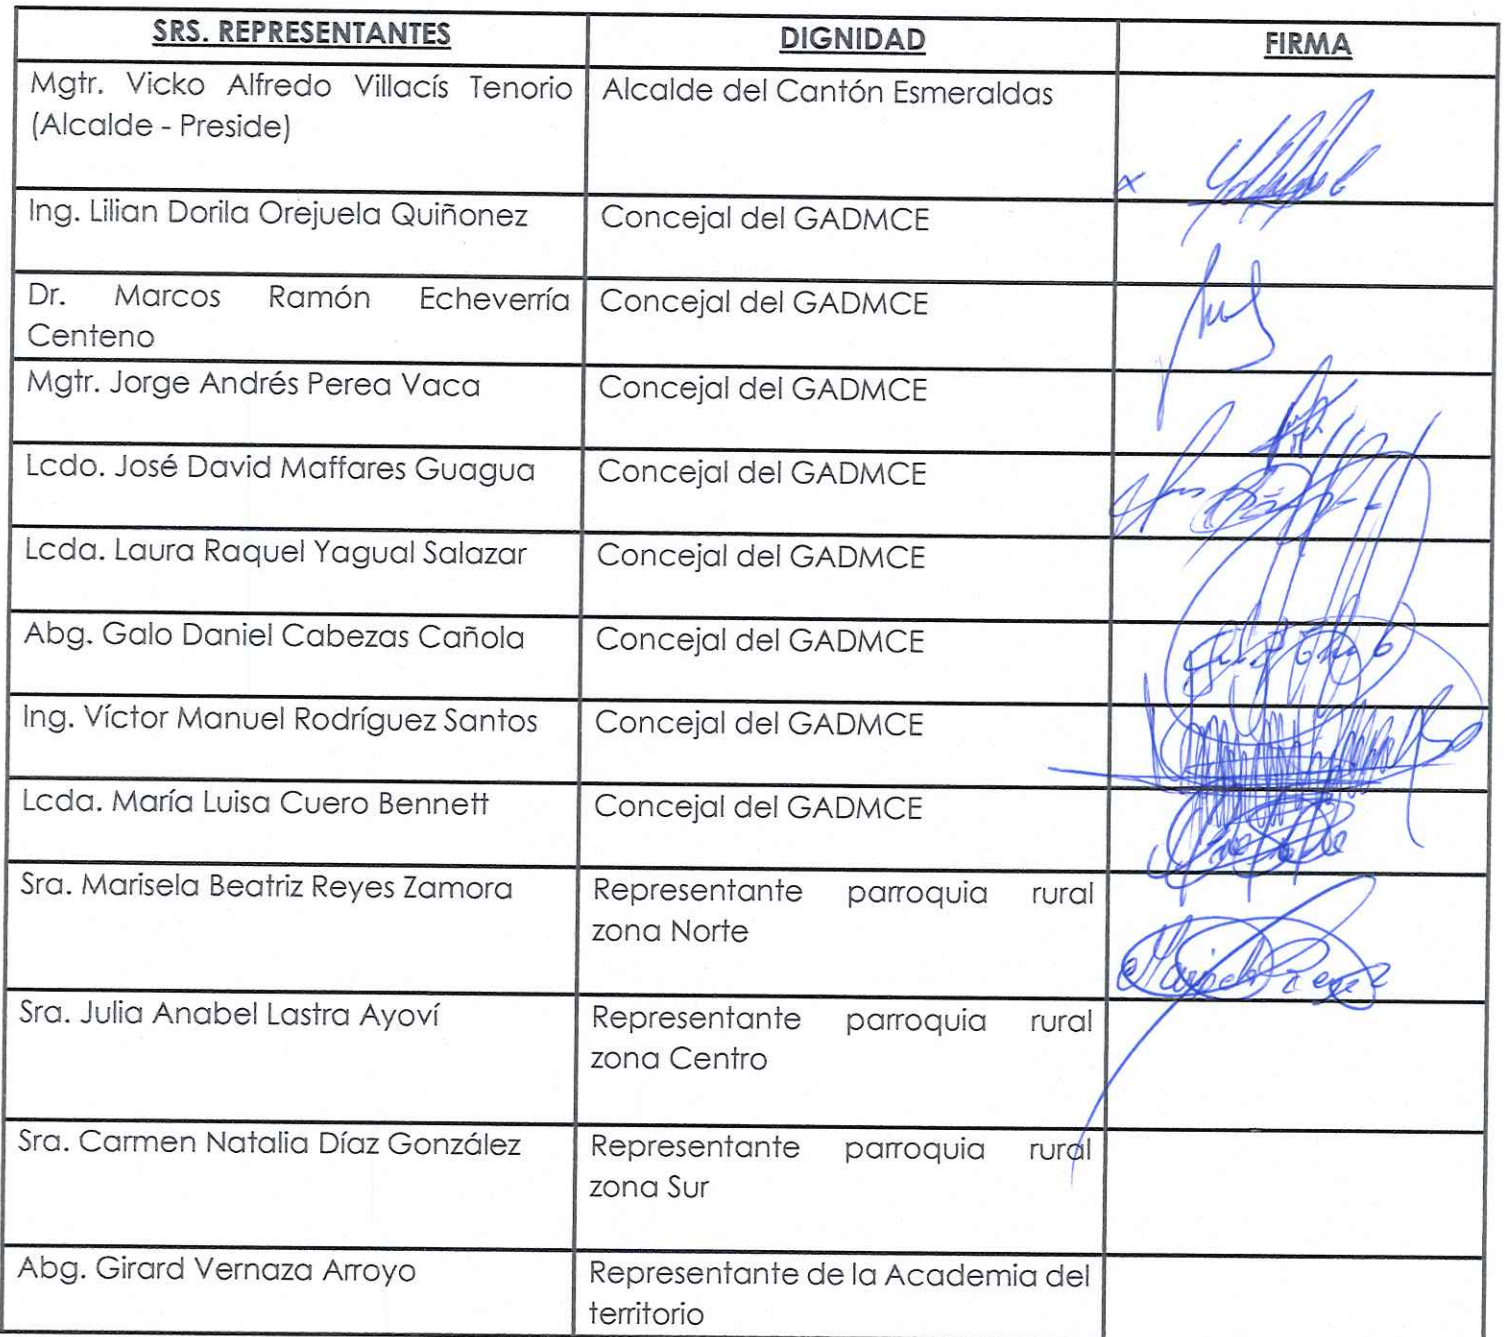 SRS. REPRESENTANTES DIGNIDAD FIRMA
Mgtr. Vicko Alfredo Villacís Tenorio Alcalde del Cantón Esmeraldas
(Alcalde - Preside)
x
Ing. Lilian Dorila Orejuela Quiñonez Concejal del GADMCE
Dr. Marcos Ramón Echeverría Concejal del GADMCE
Centeno
Mgtr. Jorge Andrés Perea Vaca Concejal del GADMCE
Lcdo. José David Maffares Guagua Concejal del GADMCE
Lcda. Laura Raquel Yagual Salazar Concejal del GADMCE
Abg. Galo Daniel Cabezas Cañola Concejal del GADMCE
Ing. Víctor Manuel Rodríguez Santos Concejal del GADMCE
Lcda. María Luisa Cuero Bennett Concejal del GADMCE
Sra. Marisela Beatriz Reyes Zamora Representante parroquia rural
zona Norte
Sra. Julia Anabel Lastra Ayoví Representante parroquia rural
zona Centro
Sra. Carmen Natalia Díaz González Representante parroquia rural
zona Sur
Abg. Girard Vernaza Arroyo Representante de la Academia del
territorio